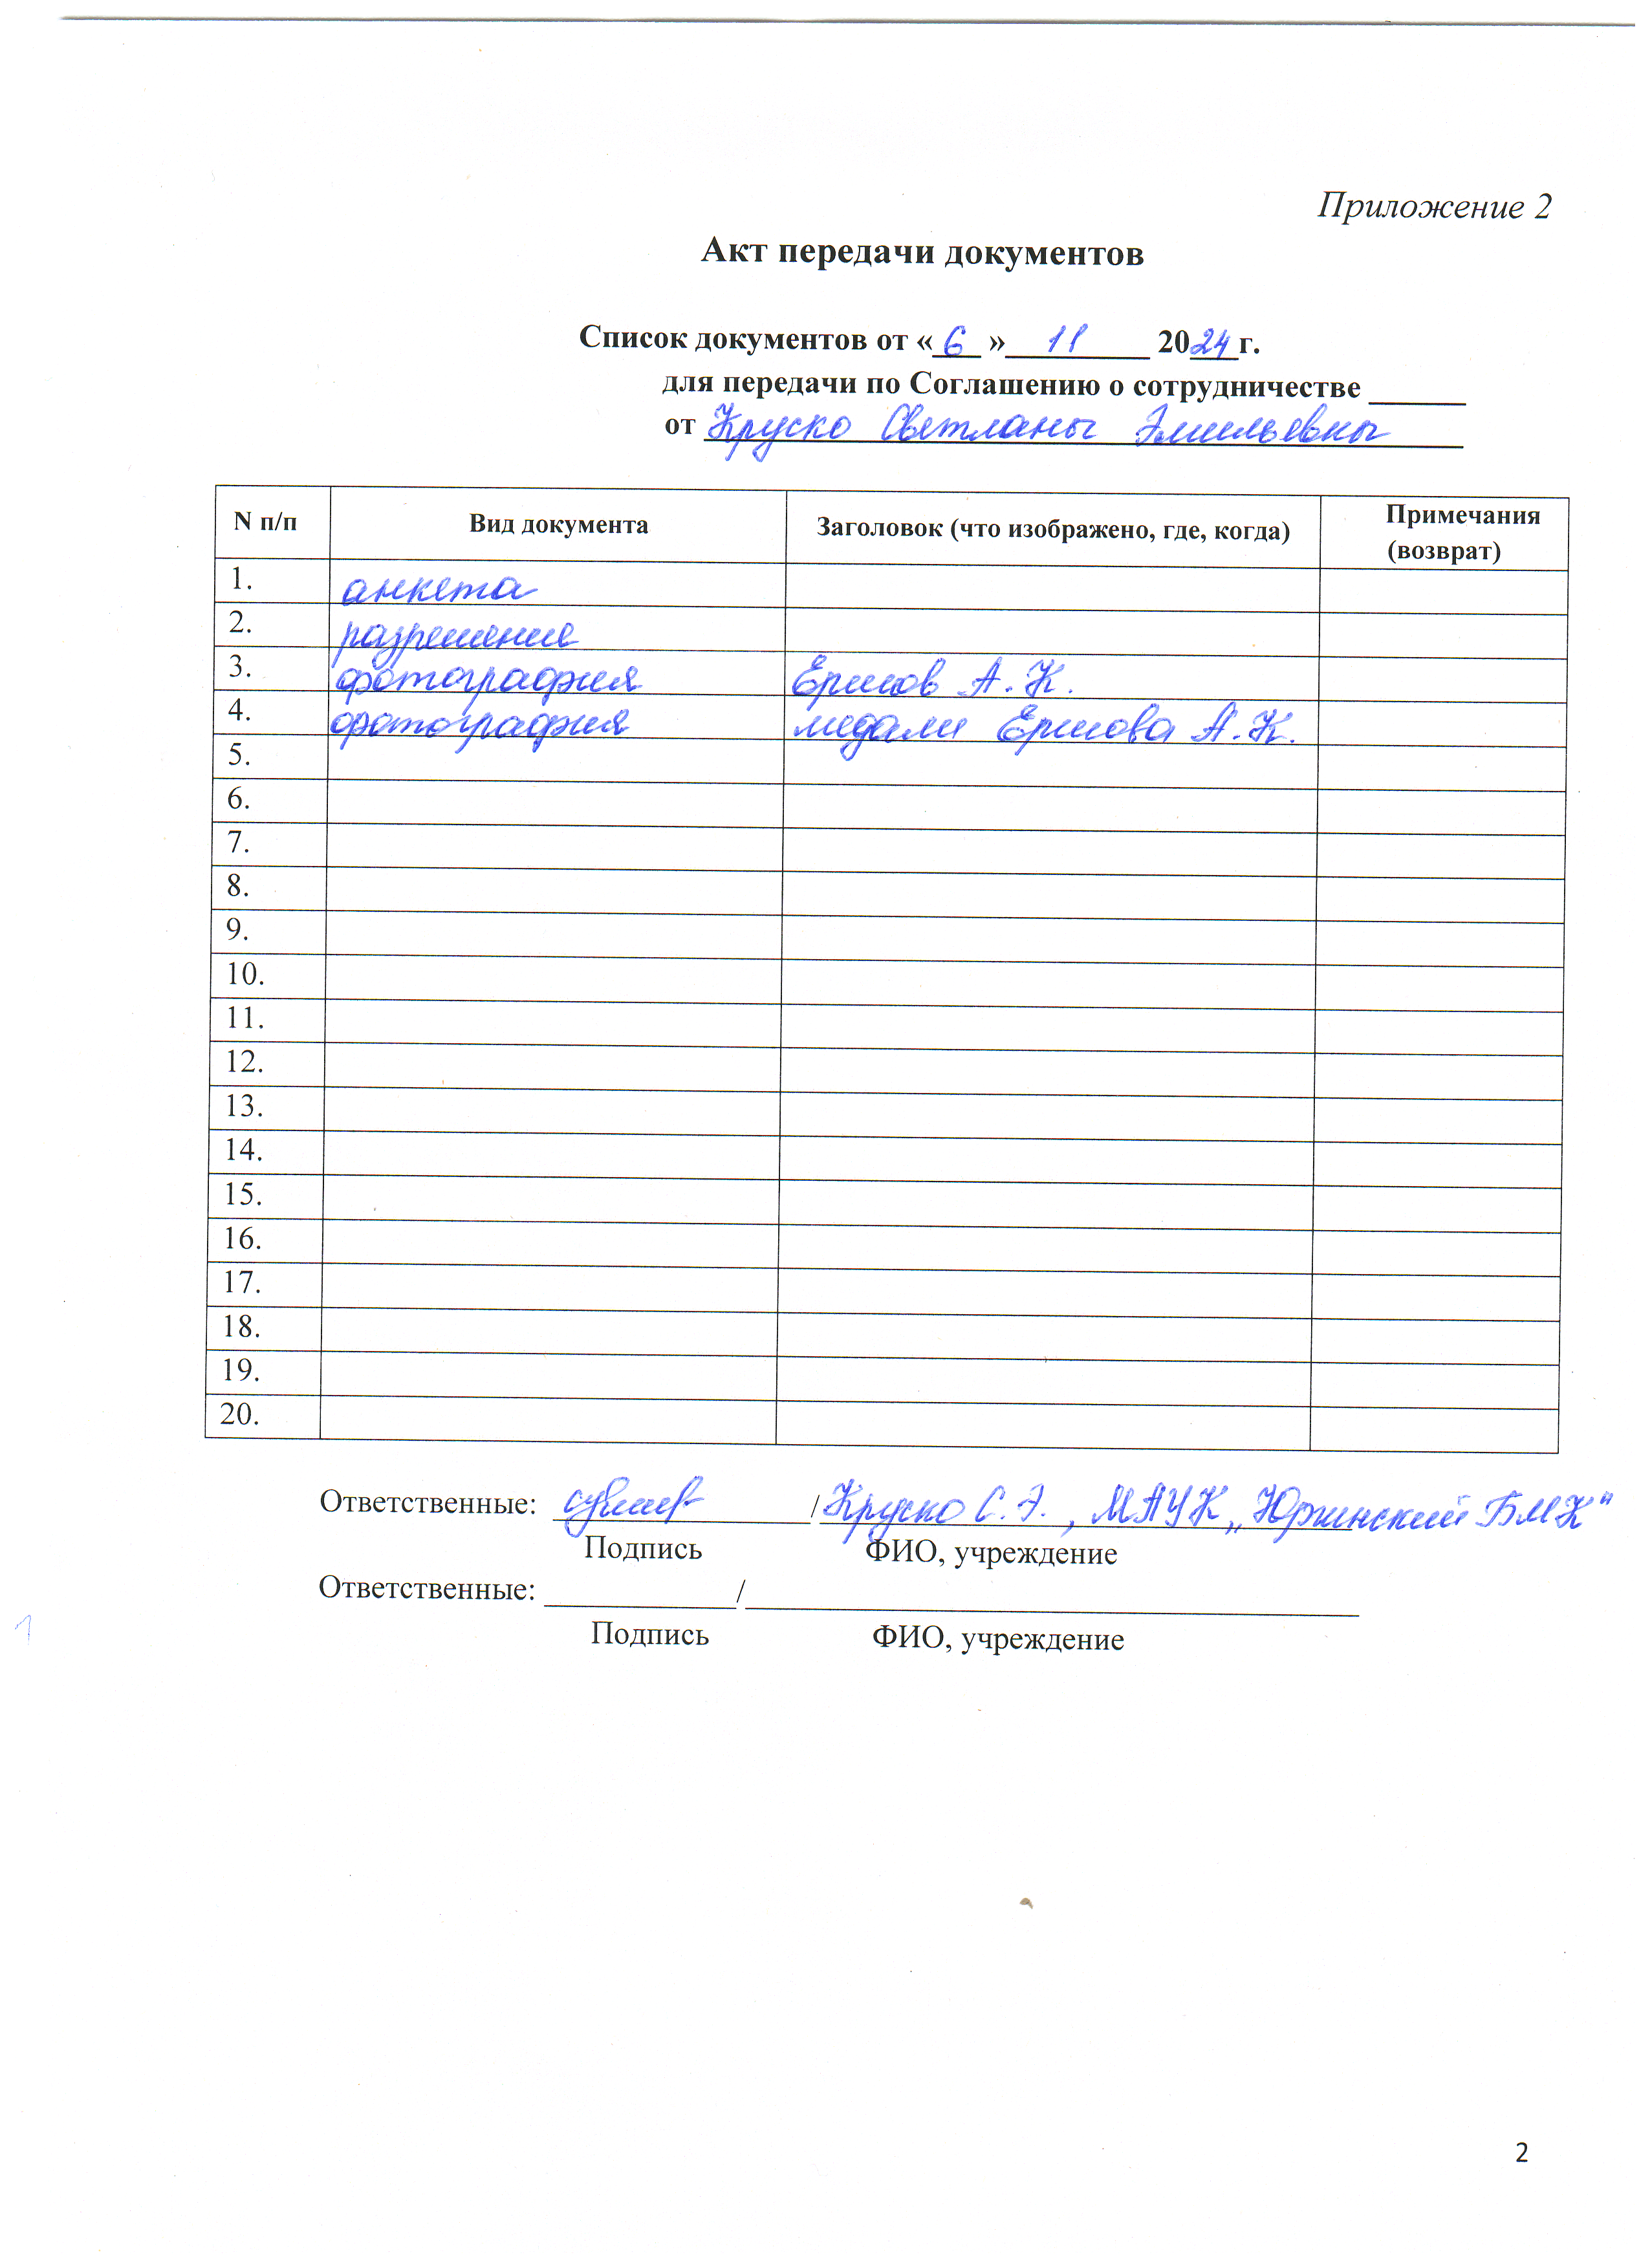 Приложение 2
Акт передачи документов
Список документов от « 6 » 11 2024г.
для передачи по Соглашению о сотрудничестве ______
от Круско Светланы Эмильевны
N п/п Вид документа Заголовок (что изображено, где, когда) Примечания (возврат)
1. анкета
2. разрешение
3. фотография Ершов А. К.
4. фотография медали Ершова А.К.
5.
6.
7.
8.
9.
10.
11.
12.
13.
14.
15.
16.
17.
18.
19.
20.
Ответственные: / Круско С. Э., МАУК „Юргинский БМК"
Подпись ФИО, учреждение
Ответственные: ____________/______________________________________
Подпись ФИО, учреждение
1
2